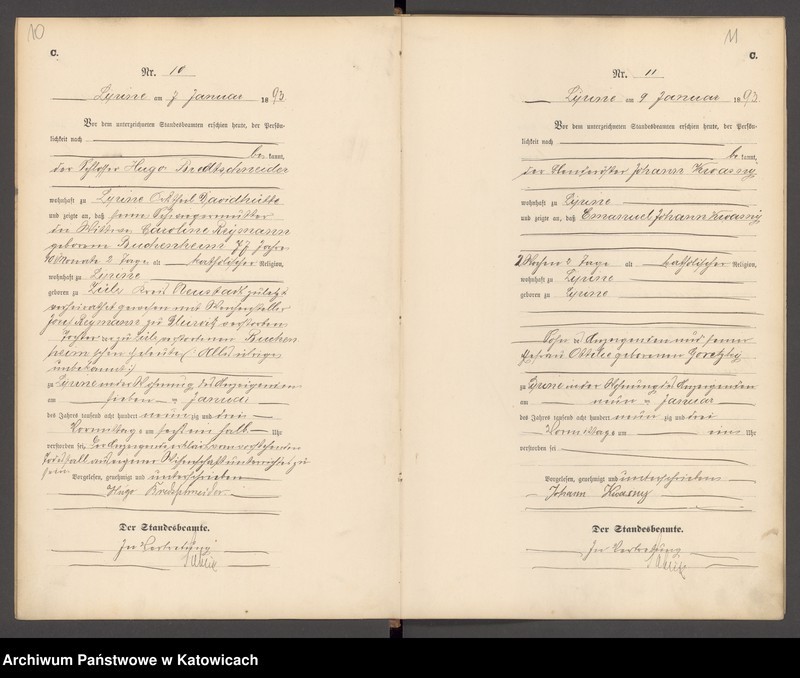 10
C.
Nr. 10
Lipine am 7 Januar 1893.
Vor dem unterzeichneten Standesbeamten erschien heute, der Persön-
lichkeit nach
be kannt,
der Schlosser Hugo Bredtschneider
wohnhaft zu Lipine Ortstheil Davidhütte
und zeigte an, daß seine Schwiegermutter
die Wittwe Caroline Reymann
geborene Buchenheim 77 Jahre
10 Monate 2 Tage alt katholischer Religion,
wohnhaft zu Lipine
geboren zu Zülz Kreis Neustadt zuletzt
verheirathet gewesen mit
Josef Reymann zu verstorben
Tochter zu Zülz verstorbenen Buchen
heim'schen Eheleute (Alles übrige
unbekannt.)
zu Lipine in der Wohnung des Anzeigenden
am sieben ten Januar
des Jahres tausend acht hundert neun zig und drei
Vormittags um sechs ein halb Uhr
verstorben sei, der Anzeigende erklärt vom vorstehenden
Todesfall aus eigener Wissenschaft unterrichtet zu
sein
Vorgelesen, genehmigt und unterschrieben
Hugo Bredschneider
Der Standesbeamte.
In Vertretung
11
C.
Nr. 11
Lipine am 9 Januar 1893.
Vor dem unterzeichneten Standesbeamten erschien heute, der Persön-
lichkeit nach
be kannt,
der Johann Kwasny
wohnhaft zu Lipine
und zeigte an, daß Emanuel Johann Kwasny
2 Wochen 2 Tage alt katholischer Religion,
wohnhaft zu Lipine
geboren zu Lipine
Sohn d Anzeigenden und seiner
Ehefrau Ottilie geborenen Goretzky
zu Lipine in der Wohnung des Anzeigenden
am neun ten Januar
des Jahres tausend acht hundert neun zig und drei
Vormittags um eins Uhr
verstorben sei
Vorgelesen, genehmigt und unterschrieben
Johann Kwasny
Der Standesbeamte.
In Vertretung
Archiwum Państwowe w Katowicach